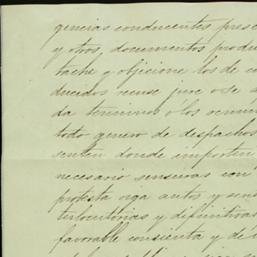 gencias conducentes, prese
y otros, documentos produ
tache y objecione los de co
ducidos recuse jure o de s
da terminos o los renun
todo genero de despachos
senten donde importen
necesario sensivas con
protesta oiga autos y sens
terlocutorias y difinitivas
favorable consienta y de